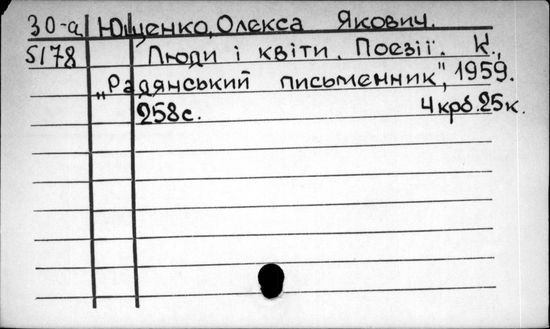 30-а Ющенко, Олекса Якович.
5178 Люди і квіти. Поезії. К.,
„Радянський письменник", 1959.
258с. 4крб.25к.